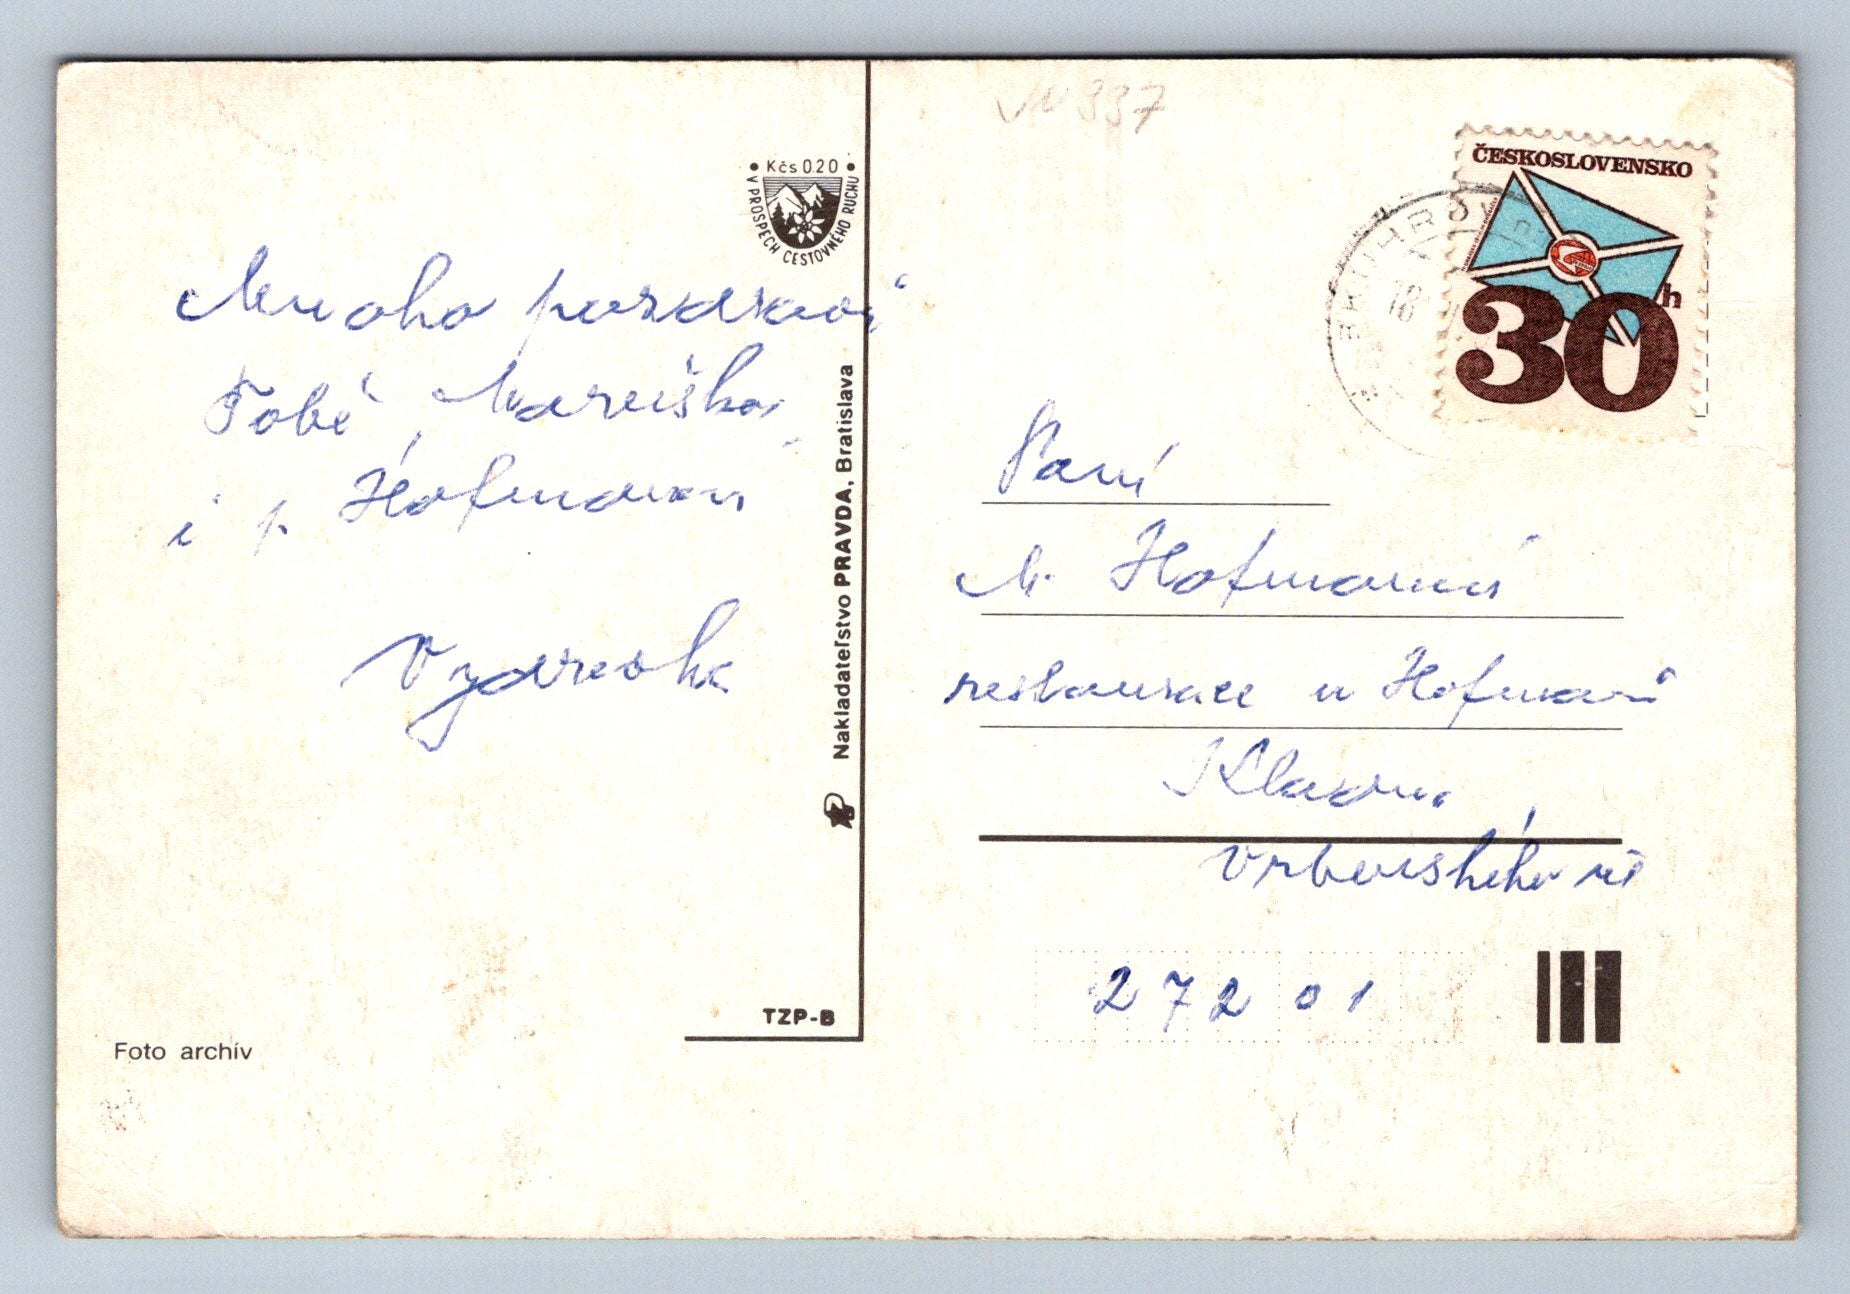 VN 337
Kčs 0.20
V PROSPECH CESTOVNÉHO RUCHU
Mnoho pozdravů
Tobě, Maruško,
i p. Hofmanovi
Nakladateľstvo PRAVDA, Bratislava
TZP-B
Foto archív
ČESKOSLOVENSKO
30h
18
Paní
M. Hofmanová
restaurace u Hofmanů
Kladno,
Vrbenského ul
272 01